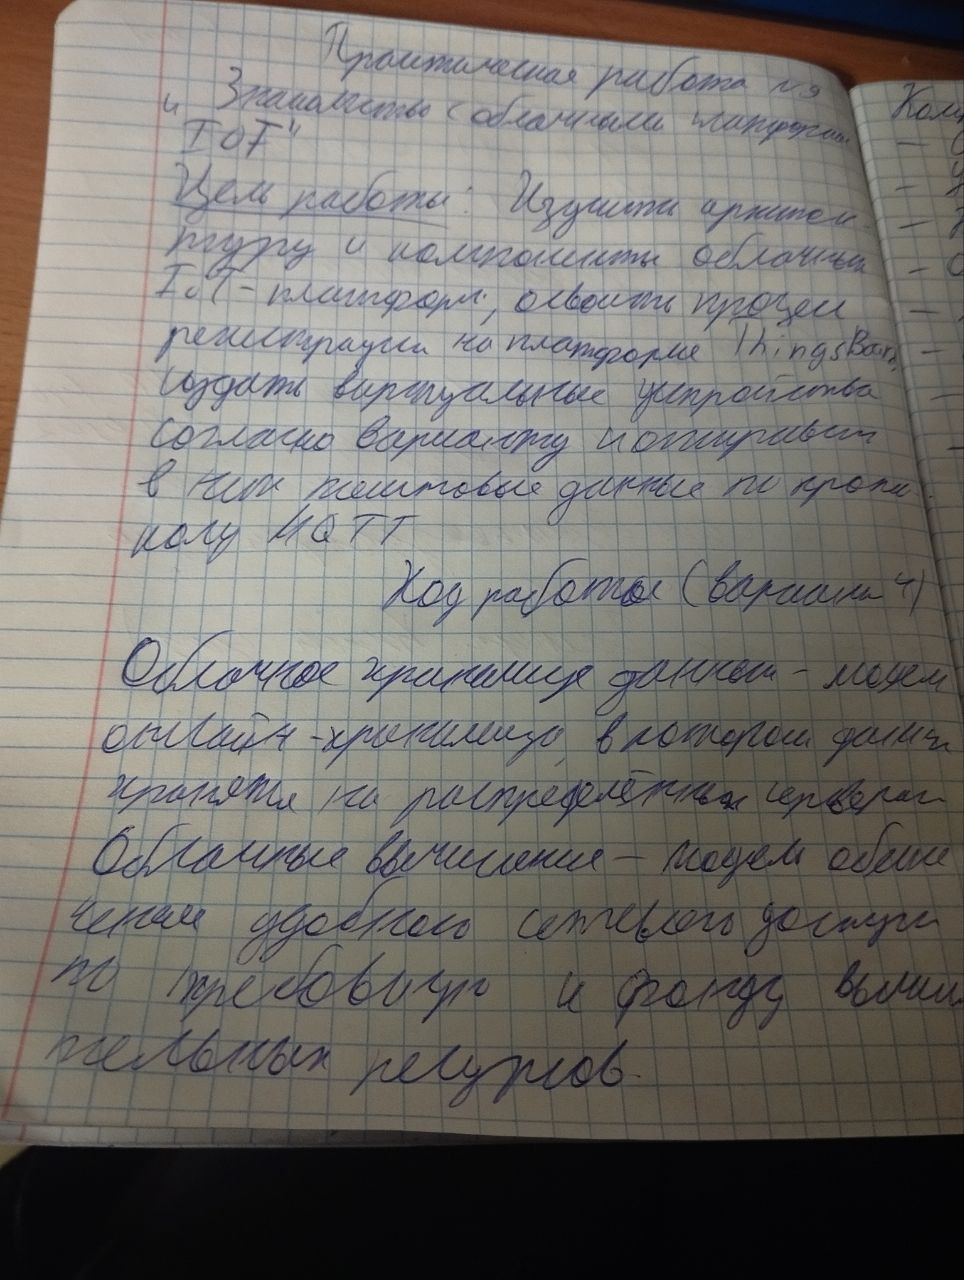 Практическая работа №9
" Знакомство с облачными платформами
IoT"
Цель работы: Изучить архитек-
туру и компоненты облачных
IoT-платформ, освоить процесс
регистрации на платформе ThingsBoard,
создать виртуальные устройства
согласно варианту и отправить
в них тестовые данные по прото-
колу MQTT
Ход работы (вариант 4)
Облачное хранилище данных – модель
онлайн-хранилища, в котором данные
хранятся на распределённых серверах
Облачные вычисления – модель обеспе
чения удобного сетевого доступа
по требованию к фонду вычисли
тельных ресурсов.
Комп